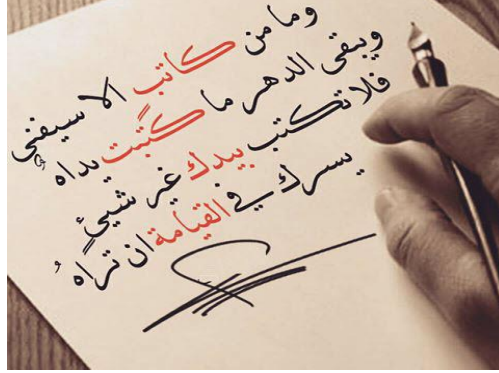 وما من كاتب الا سيفنى
ويبقى الدهر ما كتبت يداهُ
فلا تكتب بيدك غير شيئٍ
يسرك في القيامة ان تراهُ